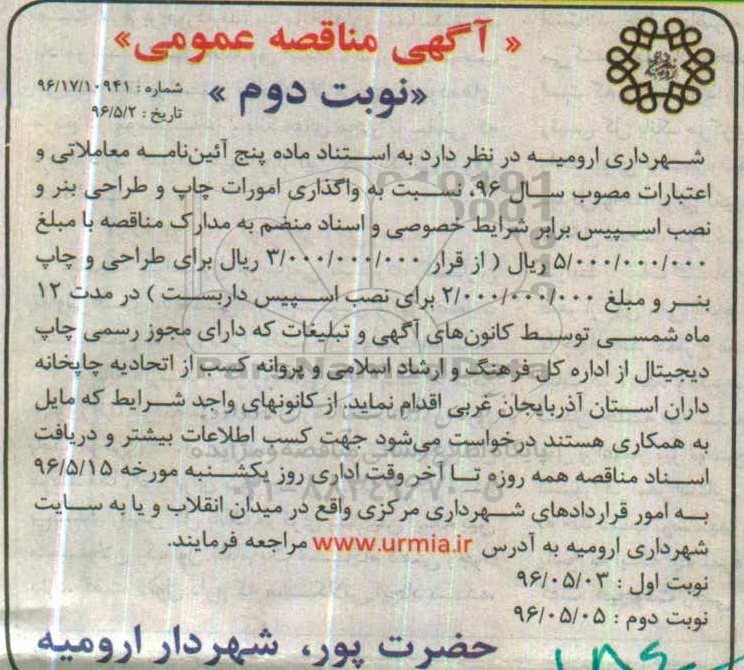 « آگهی مناقصه عمومی»
«نوبت دوم »
شماره : ۹۶/۱۷/۱۰۹۴۱
تاریخ : ۹۶/۵/۲
شهرداری ارومیه در نظر دارد به استناد ماده پنج آئین‌نامه معاملاتی و
اعتبارات مصوب سال ۹۶، نسبت به واگذاری امورات چاپ و طراحی بنر و
نصب اسپیس برابر شرایط خصوصی و اسناد منضم به مدارک مناقصه با مبلغ
۵/۰۰۰/۰۰۰/۰۰۰ ریال ( از قرار ۳/۰۰۰/۰۰۰/۰۰۰ ریال برای طراحی و چاپ
بنر و مبلغ ۲/۰۰۰/۰۰۰/۰۰۰ برای نصب اسپیس داربست ) در مدت ۱۲
ماه شمسی توسط کانون‌های آگهی و تبلیغات که دارای مجوز رسمی چاپ
دیجیتال از اداره کل فرهنگ و ارشاد اسلامی و پروانه کسب از اتحادیه چاپخانه
داران استان آذربایجان غربی اقدام نماید. از کانونهای واجد شرایط که مایل
به همکاری هستند درخواست می‌شود جهت کسب اطلاعات بیشتر و دریافت
اسناد مناقصه همه روزه تا آخر وقت اداری روز یکشنبه مورخه ۹۶/۵/۱۵
به امور قراردادهای شهرداری مرکزی واقع در میدان انقلاب و یا به سایت
شهرداری ارومیه به آدرس www.urmia.ir مراجعه فرمایند.
نوبت اول : ۹۶/۰۵/۰۳
نوبت دوم : ۹۶/۰۵/۰۵
حضرت پور، شهردار ارومیه